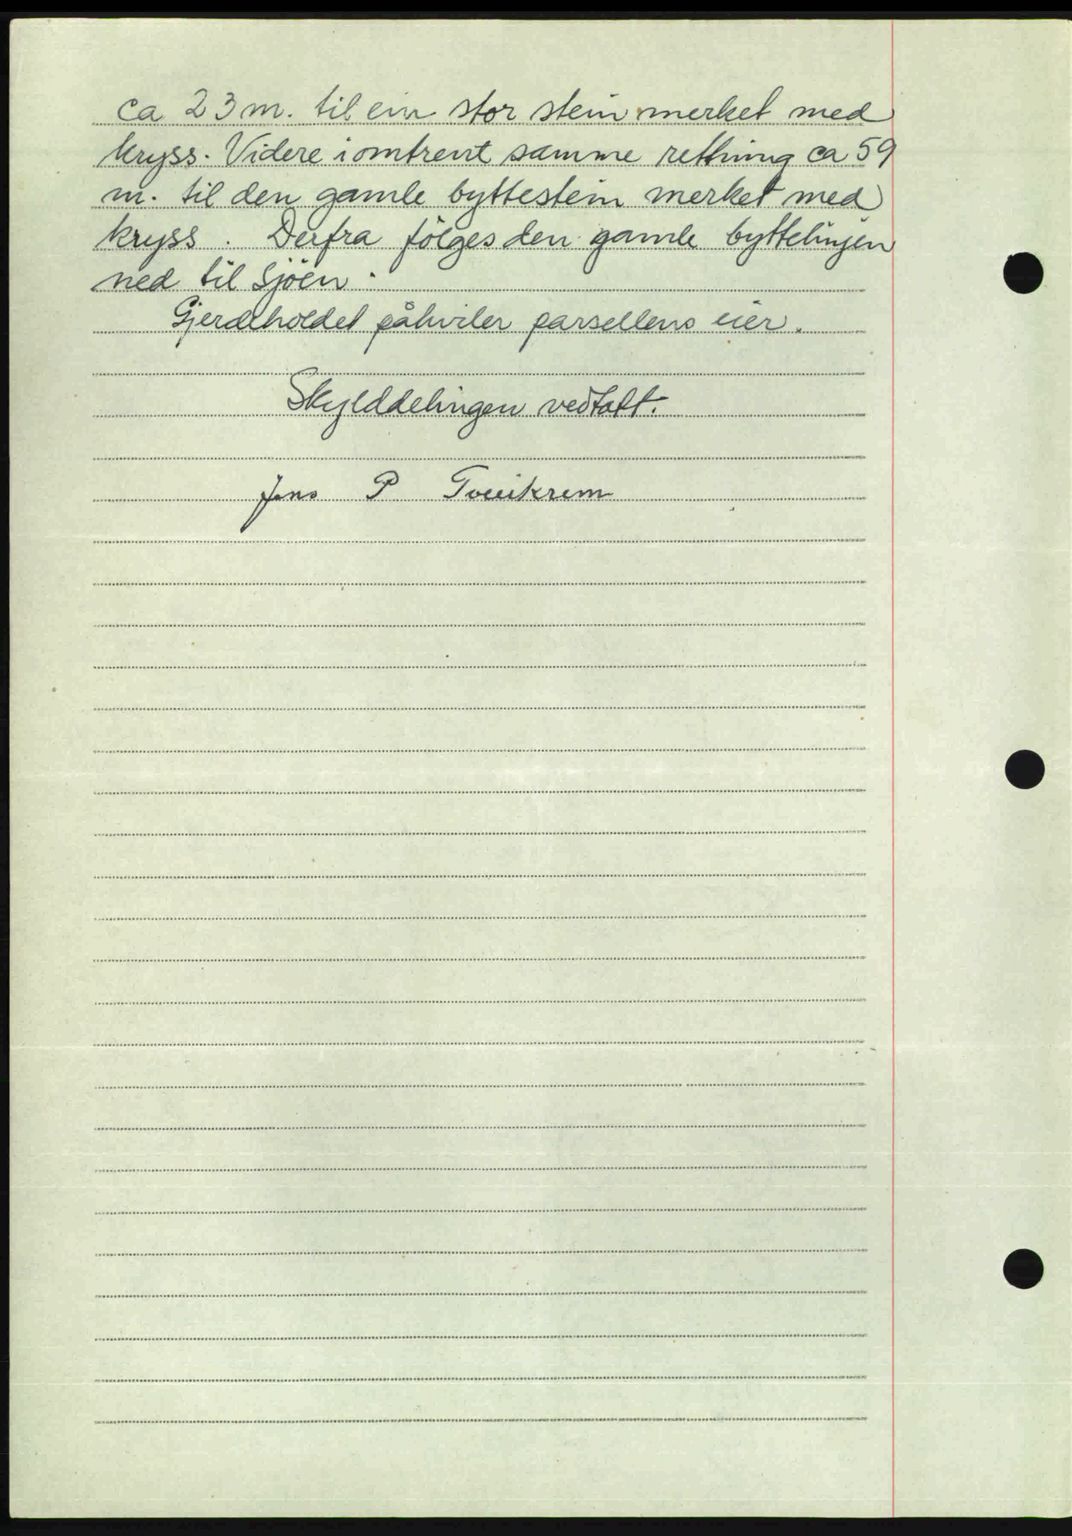 ca 23 m. til ein stor stein merket med
kryss. Videre i omtrent samme rettning ca 59
m. til den gamle byttestein merket med
kryss. Derfra følges den gamle byttelinjen
ned til Sjöen.
Gjerdeholdet påhviler parsellens eier.
Skylddelingen vedtatt.
Jens P Tveikrem